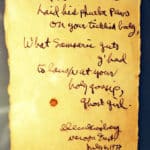 laid his Phoebe Paws
on your tickled body,
What Samsaric guts
y'had
to laugh at your
holy gossip,
ghost girl.